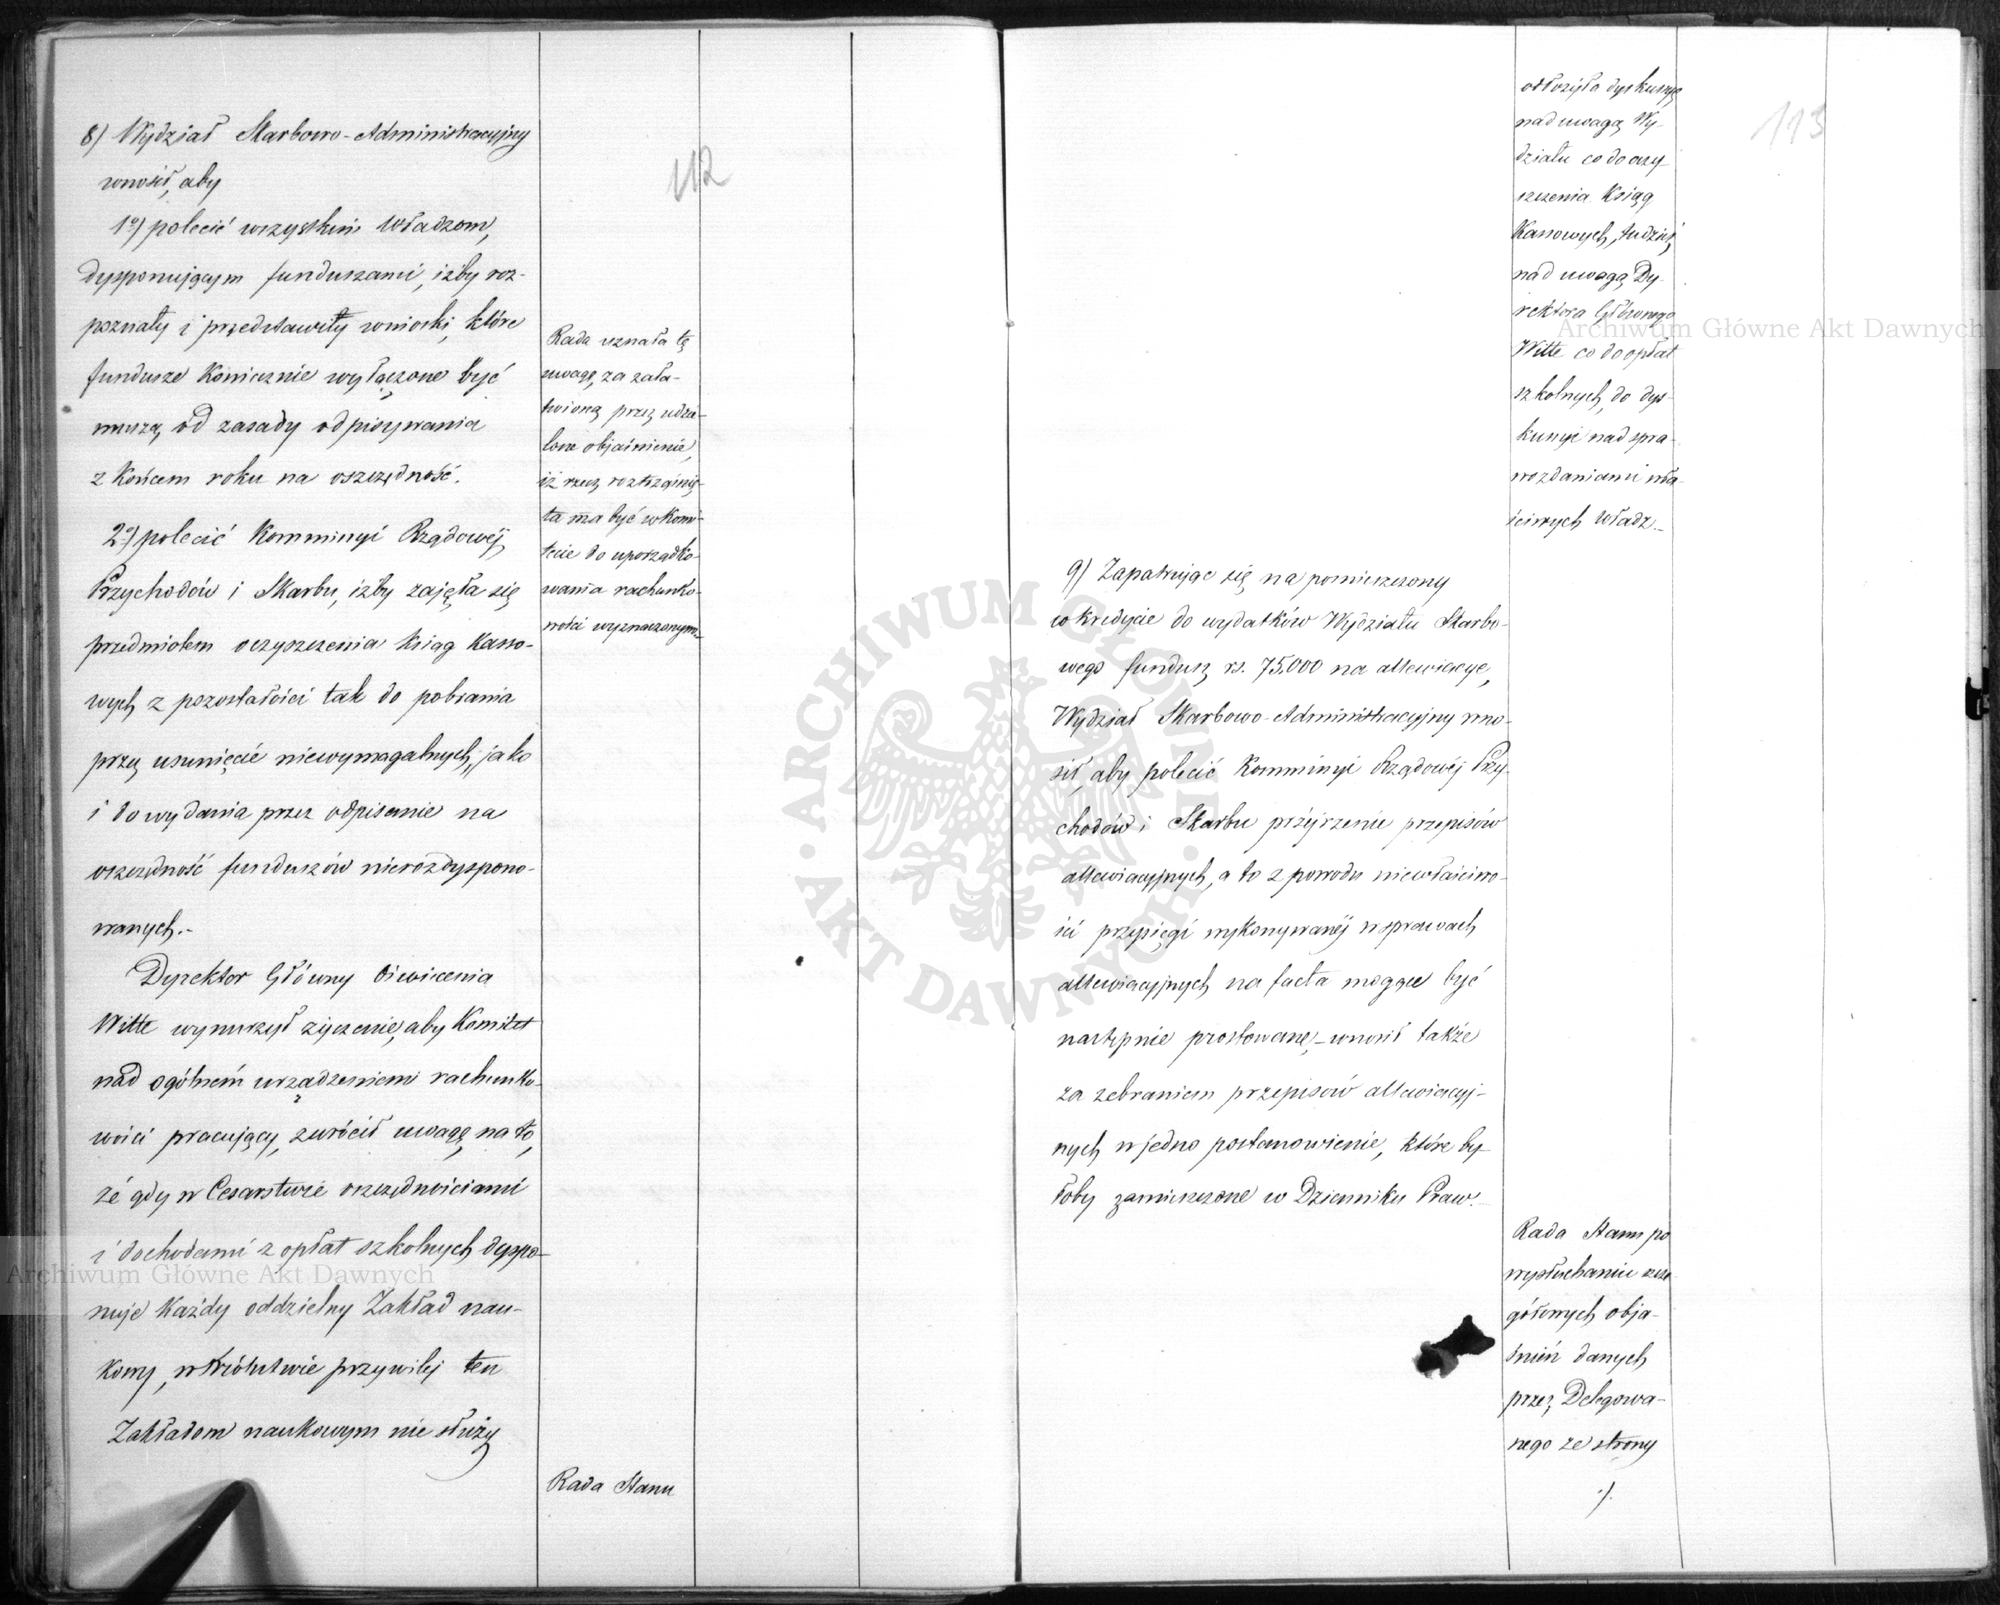 112
8) Wydział Skarbowo-Administracyjny
wnosił, aby
1o) polecić wszystkim Władzom,
dysponującym funduszami, iżby roz-
poznały i przedstawiły wnioski, które
fundusze koniecznie wyłączone być
muszą od zasady odpisywania
z końcem roku na oszczędność.
2o) polecić Kommissyi Rządowéj
Przychodów i Skarbu, iżby zajęła się
przedmiotem oczyszczenia ksiąg kasso-
wych z pozostałości tak do pobrania
przez usunięcie niewymagalnych, jako
i do wydania przez odpisanie na
oszczędność funduszów nierozdyspono-
wanych.-
Dyrektor Główny Oświecenia
Witte wynurzył życzenie, aby Komitet
nad ogólnem urządzeniem rachunko-
wości pracujący, zwrócił uwagę na to,
że gdy w Cesarstwie oszczędnościami
i dochodami z opłat szkolnych dyspo-
nuje każdy oddzielny Zakład nau-
kowy, w Królestwie przywilej ten
Zakładom naukowym nie służy
Rada uznała tę
uwagę, za zała-
twioną przez udzie-
lone objaśnienie,
iż rzecz roztrząśnię-
ta ma być w Komi-
tecie do uporządko-
wania rachunko-
wości wyznaczonym.-
Rada Stanu
113
odłożyła dyskussyę
nad uwagą Wy-
działu co do oczy-
szczenia Ksiąg
Kassowych, tudzież
nad uwagą Dy-
rektora Głównego
Witte co do opłat
szkolnych, do dys-
kussyi nad spra-
wozdaniami wła-
ściwych Władz.-
9) Zapatrując się na pomieszczony
w kredycie do wydatków Wydziału Skarbo-
wego fundusz rs. 75.000 na allewiacye,
Wydział Skarbowo-Administracyjny wno-
sił, aby polecić Kommissyi Rządowéj Przy-
chodów i Skarbu przejrzenie przepisów
allewiacyjnych, a to z powodu niewłaściwo-
ści przysięgi wykonywanéj w sprawach
allewiacyjnych na facta mogące być
następnie prostowane,- wnosił także
za zebraniem przepisów allewiacyj-
nych w jedno postanowienie, które by-
łoby zamieszczone w Dzienniku Praw.-
Rada Stanu po
wysłuchaniu szcze-
gółowych obja-
śnień danych
przez Delegowa-
nego ze strony
./.
ARCHIWUM GŁÓWNE · AKT DAWNYCH ·
Archiwum Główne Akt Dawnych
Archiwum Główne Akt Dawnych